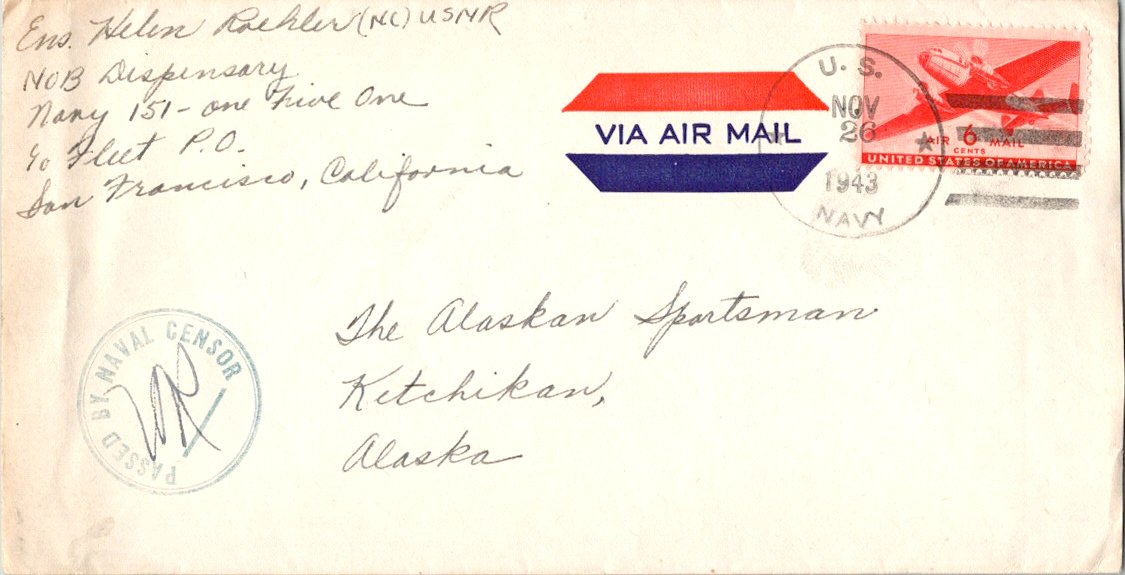 Ens. Helen Roehler (NC) USNR
NOB Dispensary
Navy 151 - one Five One
c/o Fleet P.O.
San Francisco, California
VIA AIR MAIL
U. S.
NOV
26
1943
NAVY
AIR 6 MAIL
CENTS
UNITED STATES OF AMERICA
The Alaskan Sportsman
Ketchikan,
Alaska
PASSED BY NAVAL CENSOR